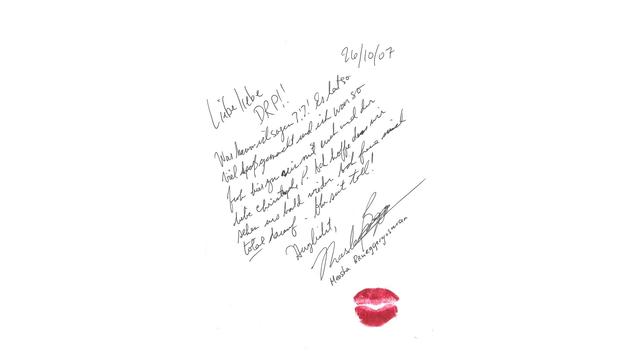 26/10/07
Liebe liebe
DRP!!
Was kann ich sagen?!?! Es hat so
viel Spaß gemacht und ich war so
froh hier zu sein mit euch und der
liebe Christoph P. Ich hoffe dass wir
sehen uns bald wieder. Ich freue mich
total darauf - Ihr seit toll!
Herzlichst,